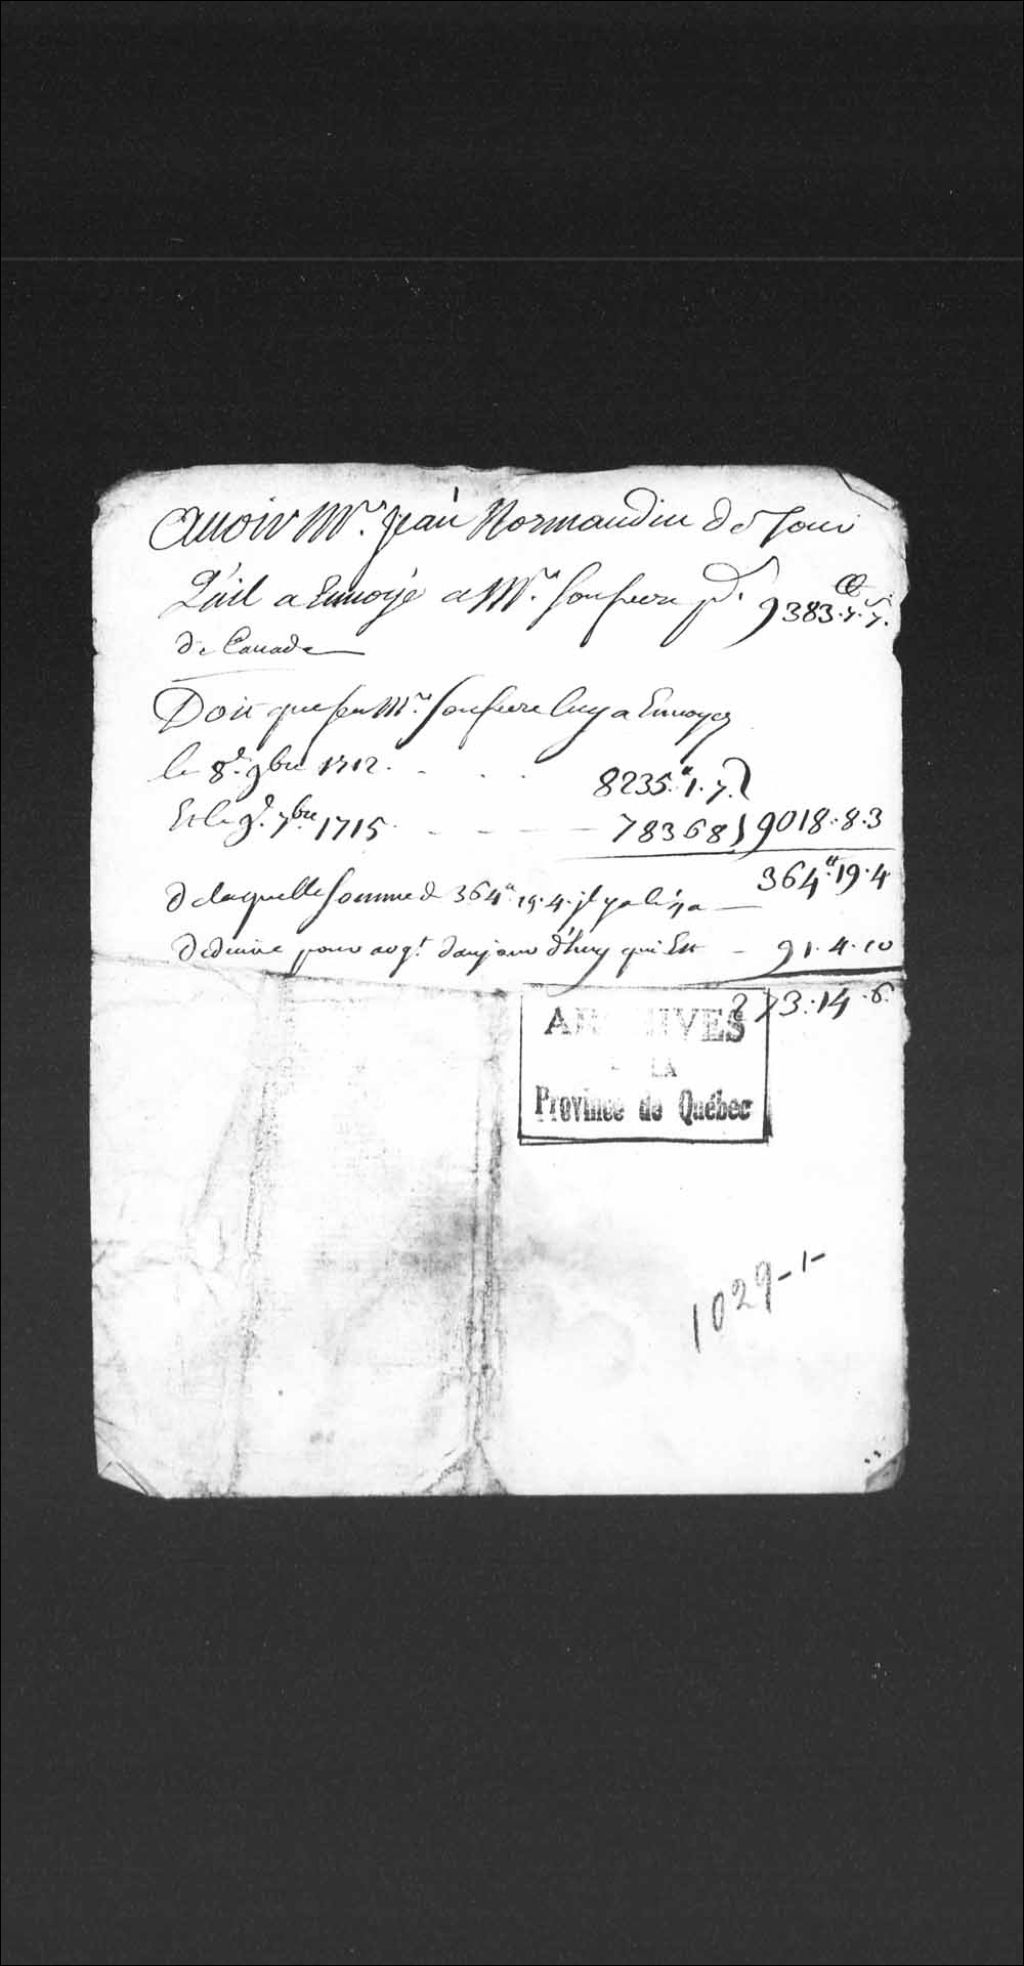 Auoir Mr. Jean Normandin de
Quil a Enuoyé a Mr. son frere pr. 9383.7.7.
de Canada
Doit que feu Mr. son frere luy a Enuoyez
le 8e. 9bre 1712. . . . 8235.tt1.7.
Et le 9e. 7bre 1715. - - - 783 6 8 } 9018.8.3
364.tt19.4
de laquelle somme de 364tt.19.4. jl y a le
deduire pour argt. daujourdhuy qui Est - 91.4.10
273.14.6.
ARCHIVES
LA
Province de Québec
1029-1-